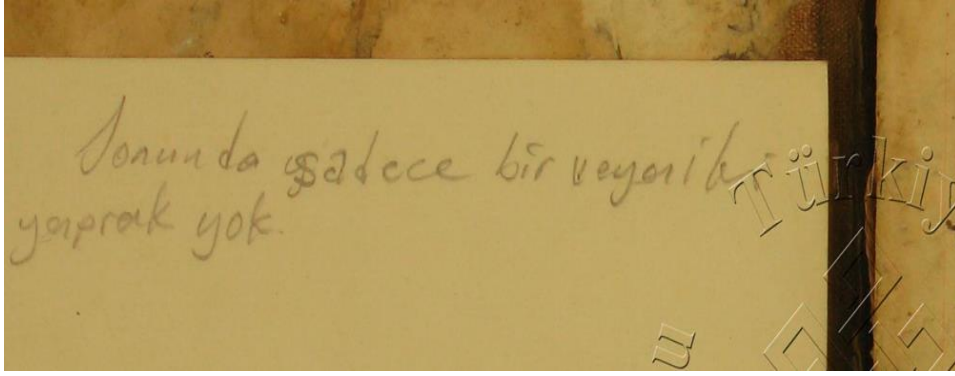 Sonunda sadece bir veya iki
yaprak yok.
Türkiy
u